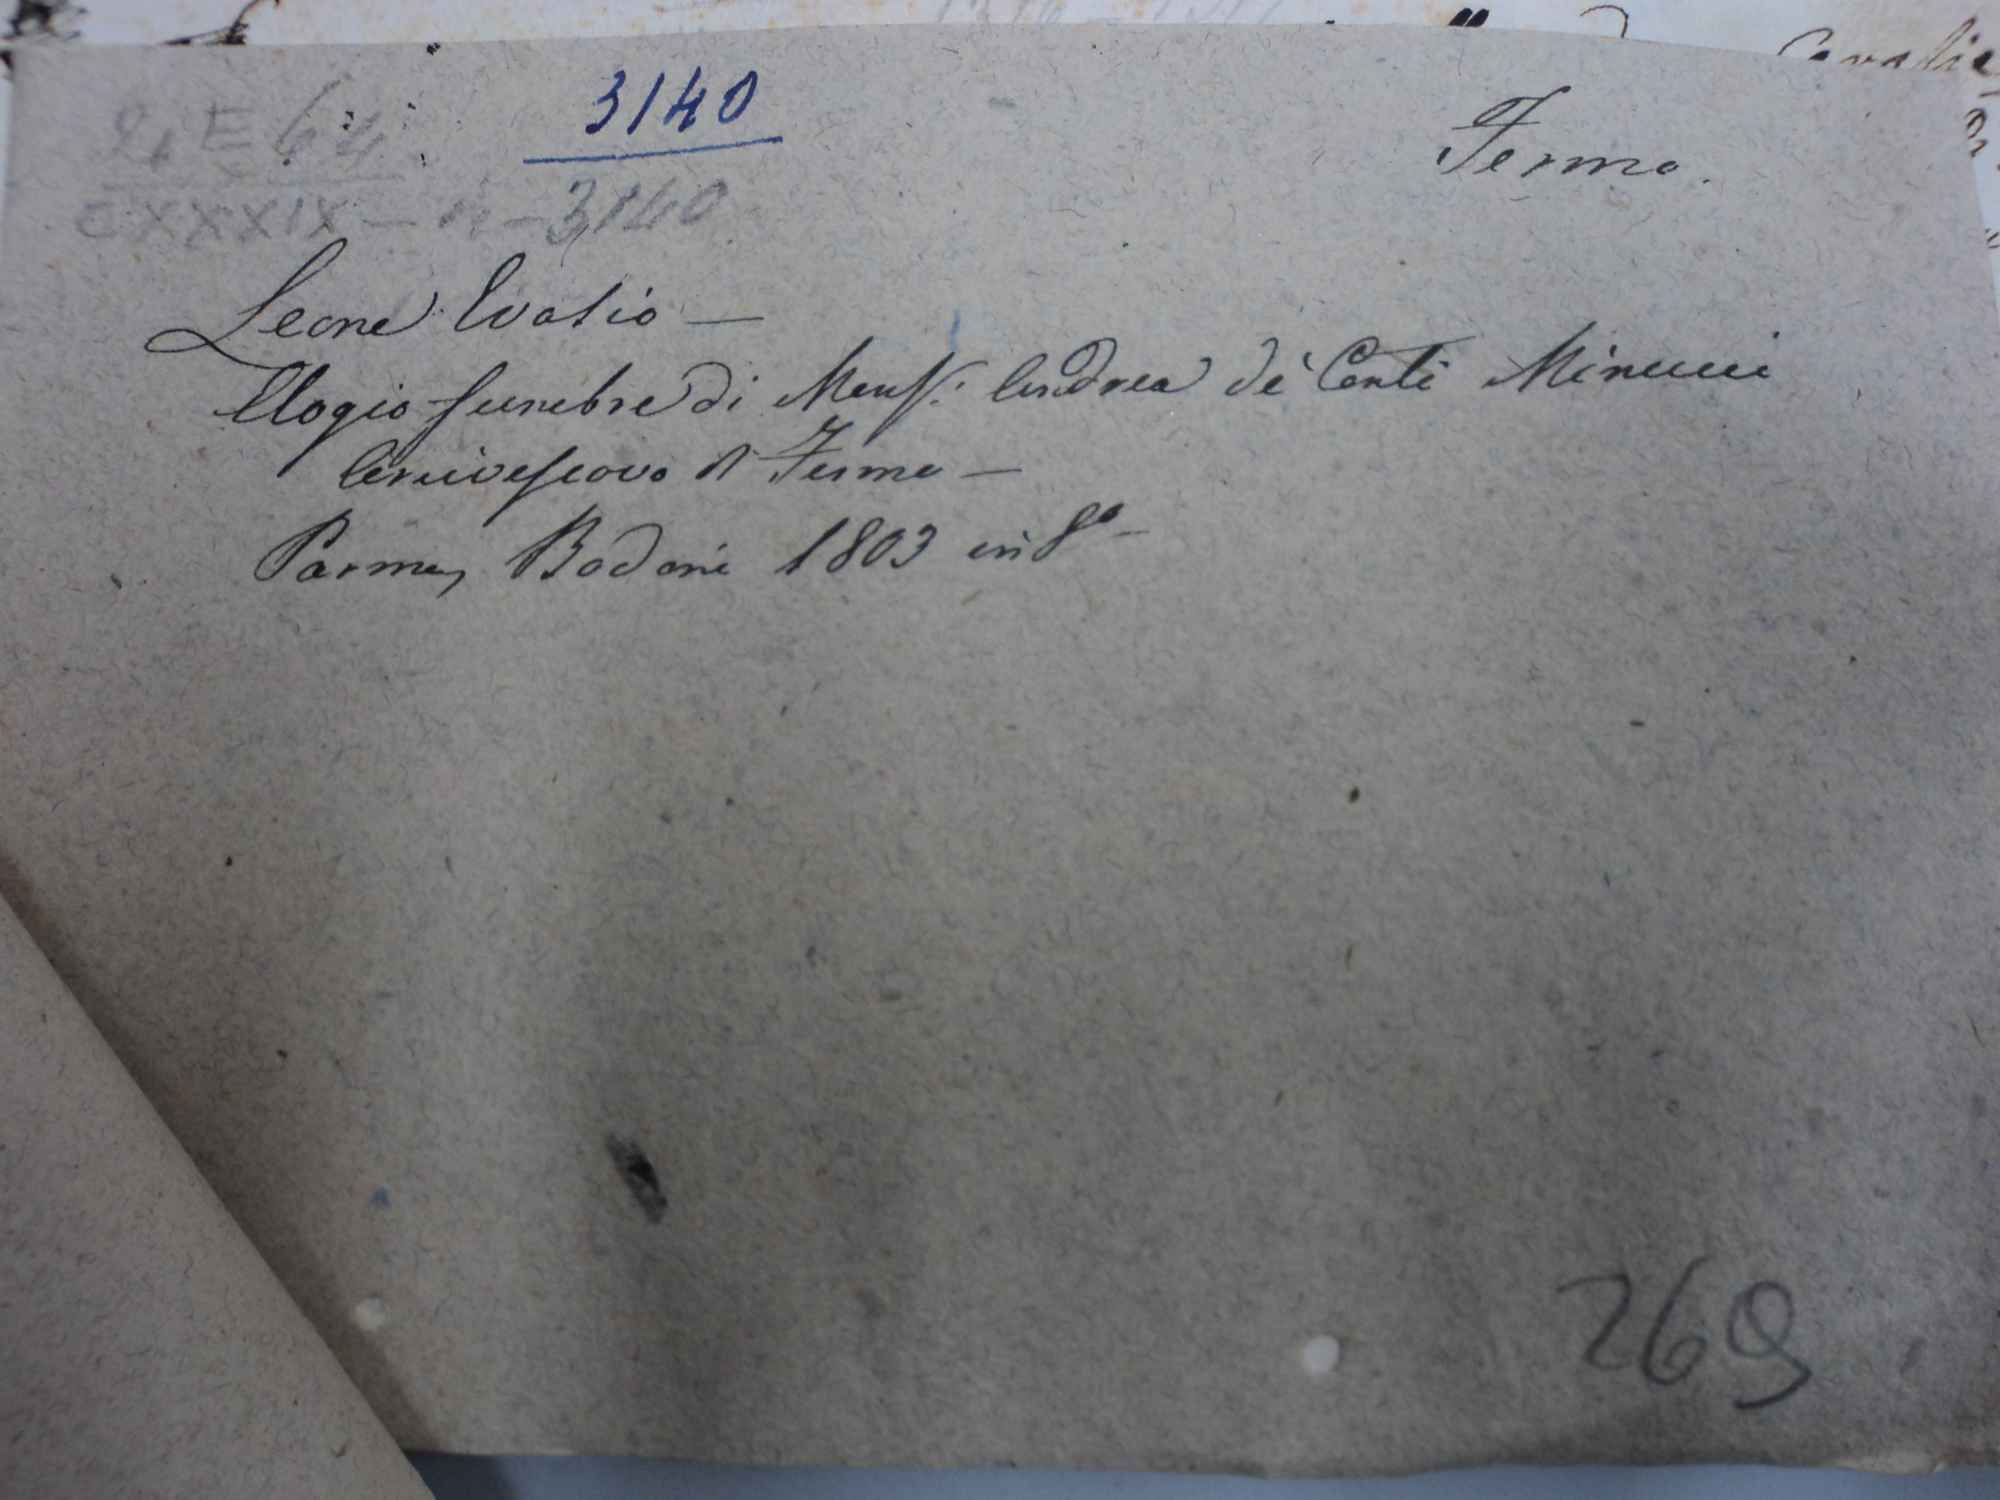 3140
Fermo.
CXXXIX — n — 3140
Leone Evasio —
Elogio funebre di Mons. Andrea de' Conti Minucci
Arcivescovo di Fermo —
Parma, Bodoni 1803 in 8°
269